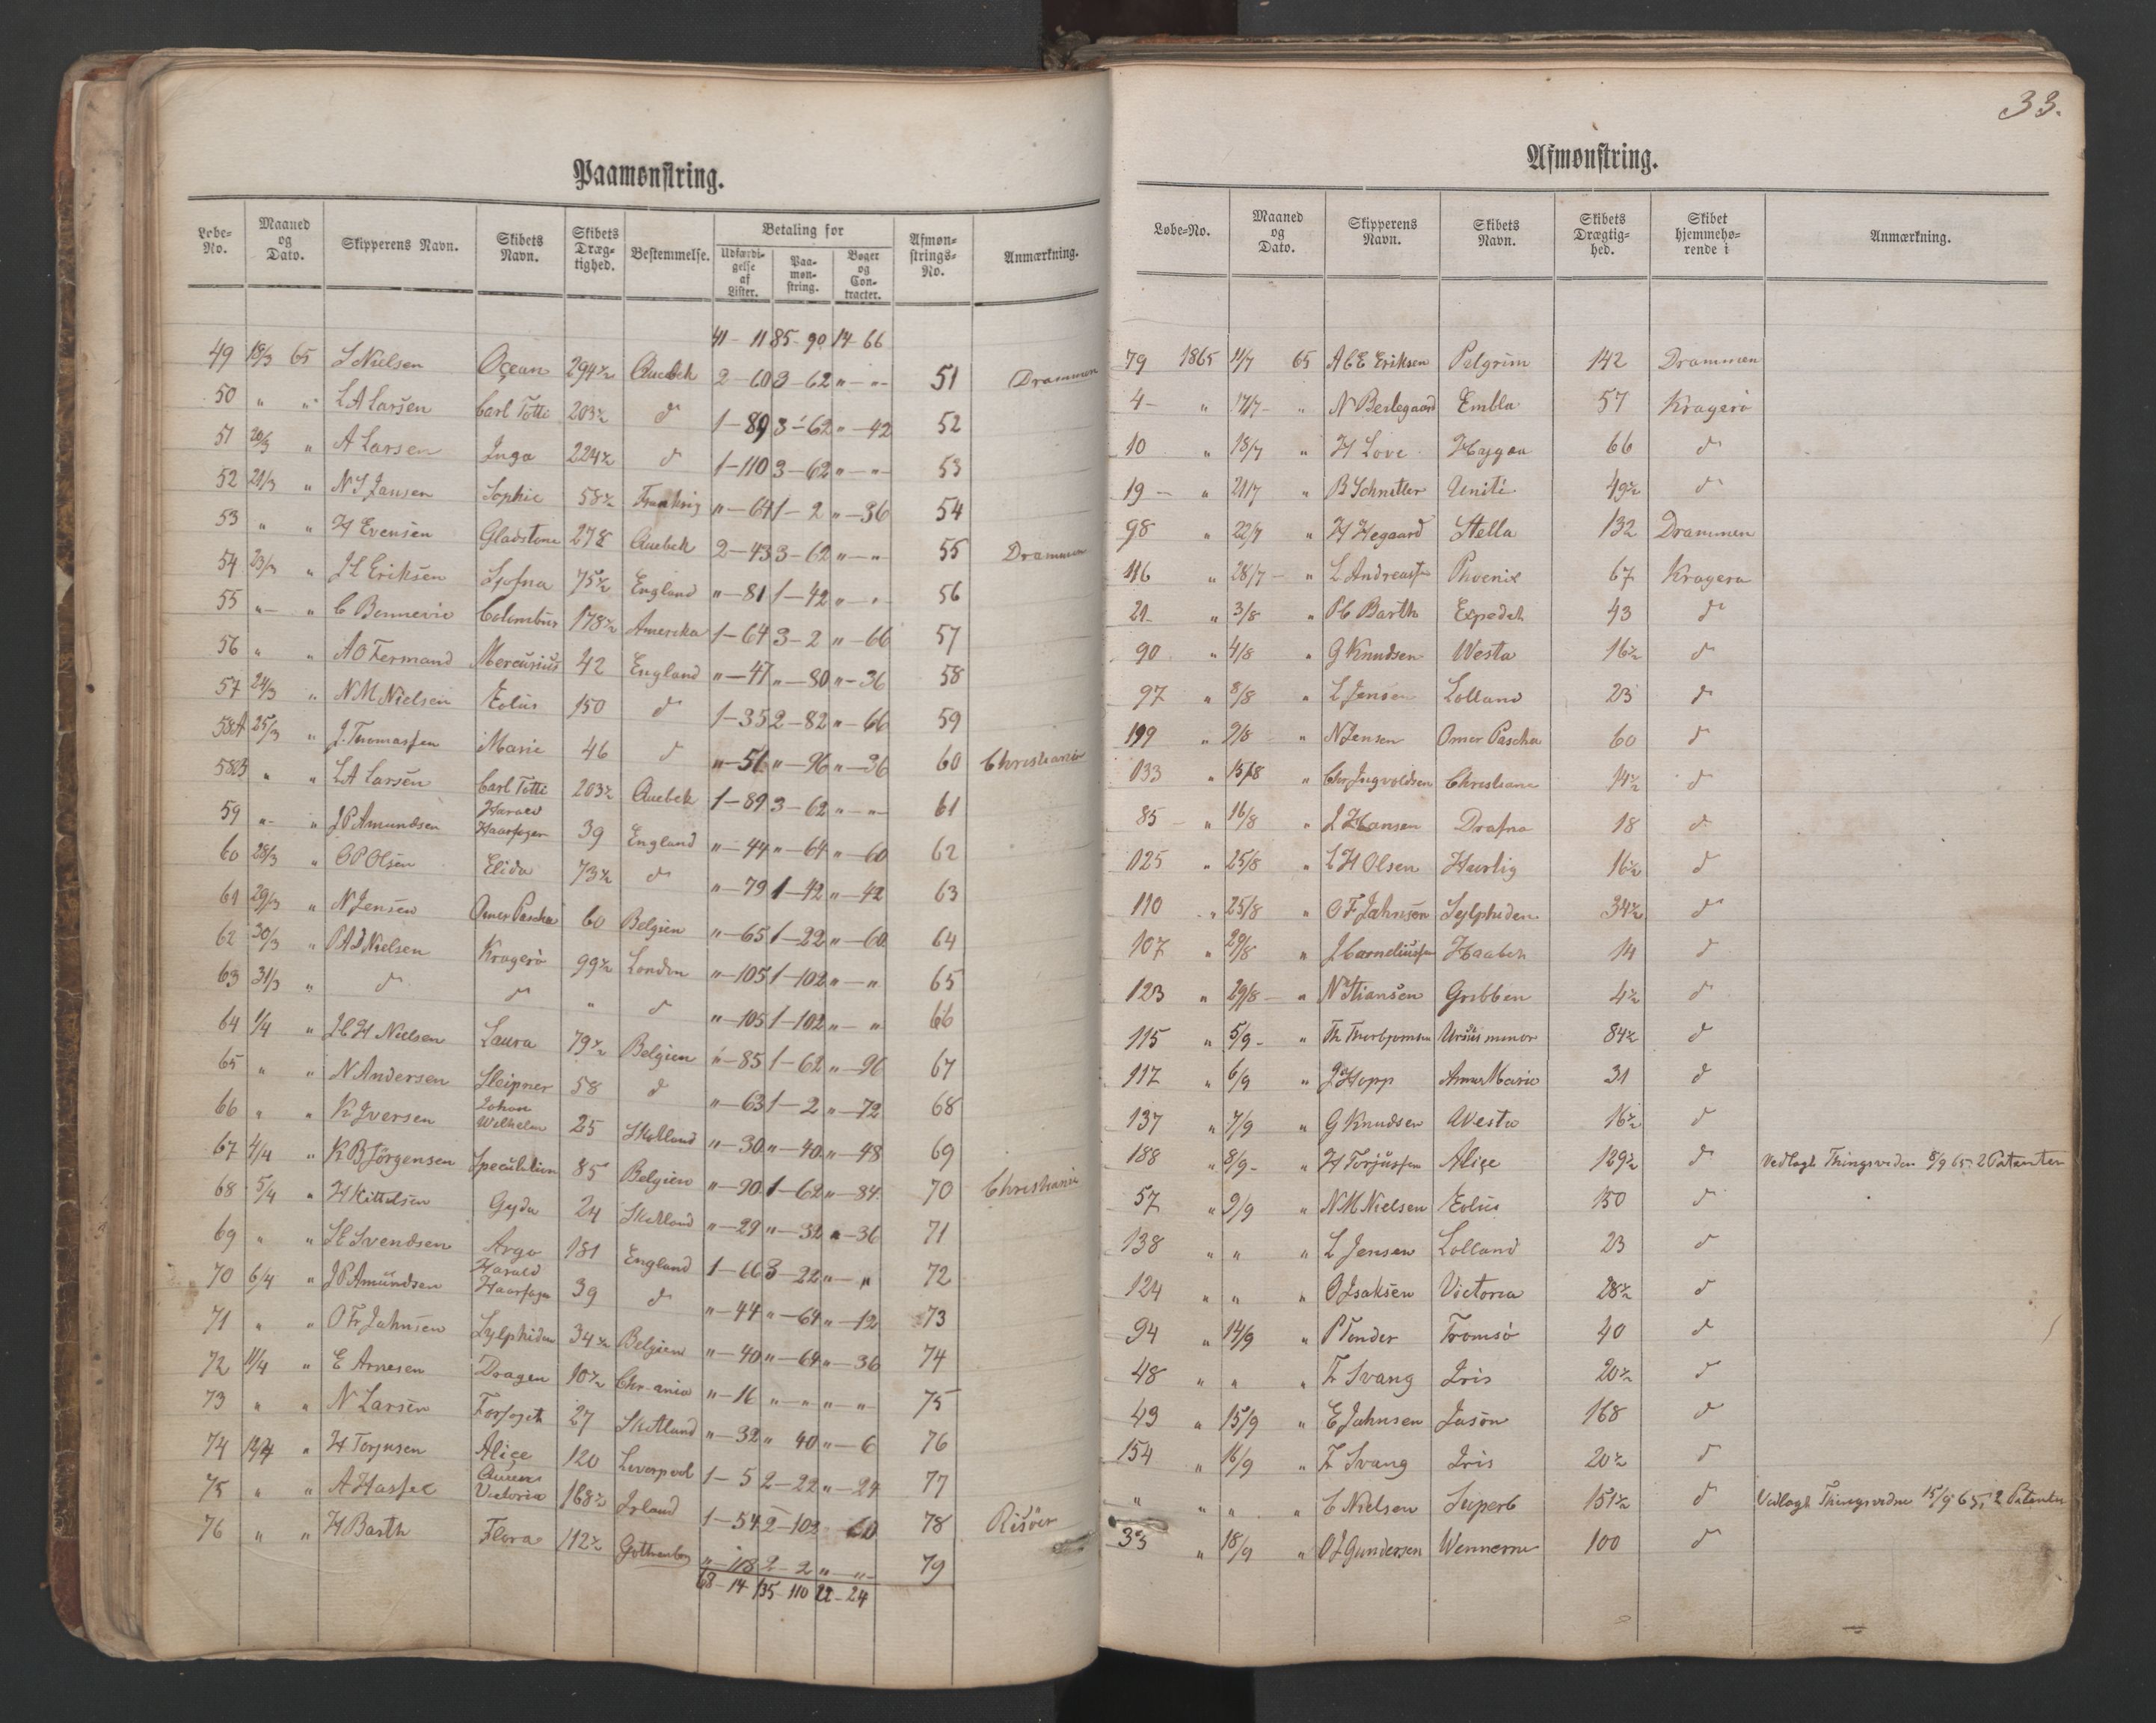 Paamønstring.
Løbe-No. | Maaned og Dato. | Skipperens Navn. | Skibets Navn. | Skibets Dræg-tighed. | Bestemmelse. | Betaling for Udfærdi-gelse af Lister. | Paa-møn-string. | Bøger og Con-tracter. | Afmøn-strings-No. | Anmærkning.
41-11 85-90 14-66
49 19/3 65 S Nielsen Oçean 294½ Quebek 2-60 3-62 "-"- 51 Drammen
50 " " L A Larsen Carl Totti 203½ d 1-89 3-62 "-42 52
51 20/3 " A Larsen Inga 224½ d 1-110 3-62 "-"- 53
52 21/3 " N S Jansen Sophie 58½ Frankrig "-64 1-2 "-36 54
53 " " H Evensen Gladstone 278 Quebek 2-43 3-62 "-"- 55 Drammen
54 23/3 " J L Eriksen Sjofna 75½ England "-81 1-42 "-"- 56
55 "- " C Bennevie Colombus 178½ Amerika 1-64 3-2 "-66 57
56 " " A O Fermand Mercurius 42 England "-47 "-80 "-36 58
57 24/3 " N M Nielsen Eolus 150 d 1-35 2-82 "-66 59
58A 25/3 " J. Thomassen Marie 46 d "-51 "-96 "-36 60 Christiania
58B " " L A Larsen Carl Totti 203½ Quebek 1-89 3-62 "-"- 61
59 "- " J P Amundsen Harald Haarfager 39 England "-44 "-64 "-60 62
60 28/3 " O P Olsen Elida 73½ d "-79 1-42 "-42 63
61 29/3 " N Jensen Omer Pascha 60 Belgien "-65 1-22 "-60 64
62 30/3 " P A J Nielsen Kragerö 99½ London "-105 1-102 "-" 65
63 31/3 " d d " d "-105 1-102 "-" 66
64 1/4 " H H Nielsen Laura 79½ Belgien "-85 1-62 "-96 67
65 " " N Andersen Sleipner 58 d "-63 1-2 "-72 68
66 " " K Iversen Johan Wilhelm 25 Skotland "-30 "-40 "-48 69
67 4/4 " K B Jörgensen Speculation 85 Belgien "-90 1-62 "-84 70 Christiania
68 5/4 " H Kittelsen Gyda 24 Skotland "-29 "-32 "-36 71
69 " " H Svendsen Argo 181 England 1-66 3-22 "-" 72
70 6/4 " J P Amundsen Harald Haarfager 39 d "-44 "-64 "-12 73
71 " " O Fr Jahnsen Sylphiden 34½ Belgien "-40 "-64 "-36 74
72 11/4 " E Arnesen Dragen 10½ Chr-ania "-16 "-" "-"- 75
73 " " N Larsen Forsøget 27 Skotland "-32 " 40 "-6 76
74 12/4 " H Torjusen Aliçe 120 Liverpool 1-5 2-22 "-24 77
75 " " A Hassel Queen Victoria 168½ Irland 1-54 2-102 60 78 Risöer
76 " " H Barth Flora 112½ Gothenborg "-118 2-2 "-"- 79
68-14 135-110 22-24
33.
Afmønstring.
Løbe-No. | Maaned og Dato. | Skipperens Navn. | Skibets Navn. | Skibets Drægtig-hed. | Skibet hjemmehø-rende i | Anmærkning.
79 1865 11/7 65 A C E Eriksen Pelgrim 142 Drammen
4- " 17/7- " N Berlegaard Embla 57 Kragerö
10 " 18/7 " H Love Haygea 66 d
19- " 21/7 " B Schnetler Unité 49½ d
98 " 22/7 " H Hegaard Stella 132 Drammen
116 " 28/7- " L Andreassen Phoenix 67 Kragerø
21- " 3/8 " P C Barth Expedet 43 d
90 " 4/8 " G Knudsen Westa 16½ d
97 " 8/8 " L Jensen Lolland 23 d
199 " 9/8 " N Jensen Omer Pascha 60 d
133 " 15/8 " Chr Ingvoldsen Christiane 14½ d
85- " 16/8 " J Hansen Drafna 18 d
125 " 25/8 " L H Olsen Hurtig 16½ d
110 " 25/8 " O F Jahnsen Sylphiden 34½ d
107 " 29/8 " J Corneliussen Haabet 14 d
123 " 29/8- " N Stiansen Gribben 4½ d
115 " 5/9- " Th Thorbjornsen Ursus minor 84½ d
117 " 6/9 " J Hopp Anne Marie 31 d
137 " 7/9 " G Knudsen Westa 16½ d
188 " 8/9- " H Torjussen Aliçe 129½ d Vedlagt Thingsviden 8/9 65. 2 Patenter
57 " 9/9 " N M Nielsen Eolus 150 d
138 " " " L Jensen Lolland 23 d
124 " " " O Isaksen Victoria 28½ d
94 " 14/9 " P Tonder Tromsö 40 d
48 " " " F Svang Iris 20½ d
43 " 15/9 " E Jahnsen Jason 168 d
154 " 16/9 " F Svang Iris 20½ d
" " " " C Nielsen Superb 151½ d Vedlagt Thingsvidne 15/9 65, 2 Patenter
33 " 18/9 " O J Gundersen Wennerne 100 d